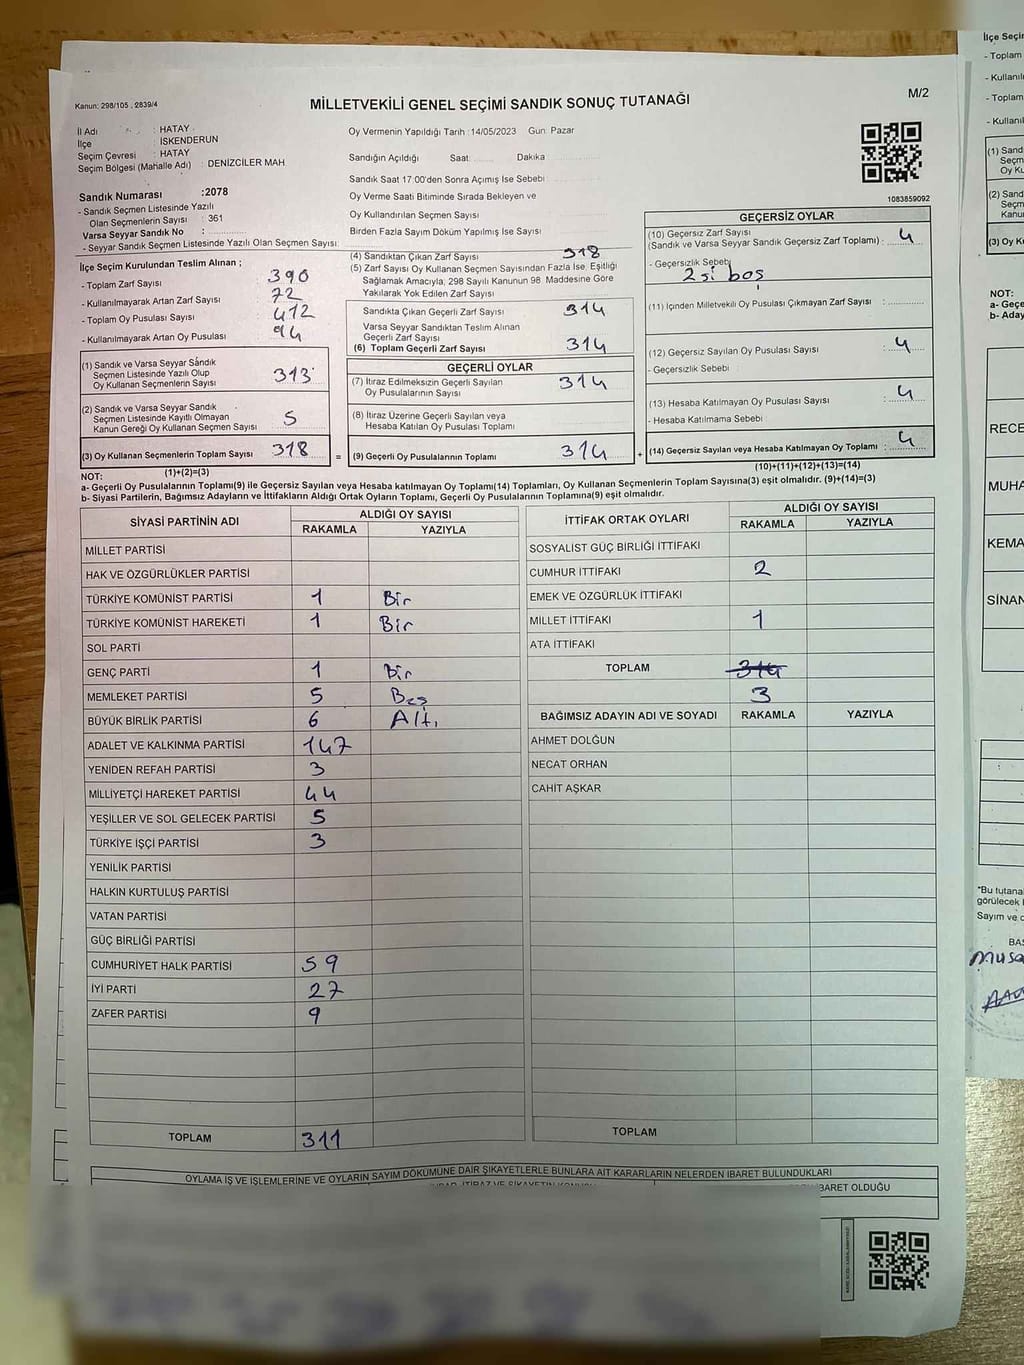 Kanun: 298/105 , 2839/4
MİLLETVEKİLİ GENEL SEÇİMİ SANDIK SONUÇ TUTANAĞI
M/2
İl Adı : HATAY
İlçe İSKENDERUN
Seçim Çevresi : HATAY
Seçim Bölgesi (Mahalle Adı) : DENİZCİLER MAH
Sandık Numarası :2078
- Sandık Seçmen Listesinde Yazılı
Olan Seçmenlerin Sayısı : 361
Varsa Seyyar Sandık No :
- Seyyar Sandık Seçmen Listesinde Yazılı Olan Seçmen Sayısı:
Oy Vermenin Yapıldığı Tarih : 14/05/2023 Gün: Pazar
Sandığın Açıldığı Saat: Dakika :
Sandık Saat 17:00'den Sonra Açımış İse Sebebi :
Oy Verme Saati Bitiminde Sırada Bekleyen ve
Oy Kullandırılan Seçmen Sayısı
Birden Fazla Sayım Döküm Yapılmış İse Sayısı :
1083859092
İlçe Seçim Kurulundan Teslim Alınan ;
- Toplam Zarf Sayısı : 390
- Kullanılmayarak Artan Zarf Sayısı : 72
- Toplam Oy Pusulası Sayısı : 412
- Kullanılmayarak Artan Oy Pusulası : 94
(1) Sandık ve Varsa Seyyar Sandık
Seçmen Listesinde Yazılı Olup
Oy Kullanan Seçmenlerin Sayısı : 313
(2) Sandık ve Varsa Seyyar Sandık
Seçmen Listesinde Kayıtlı Olmayan
Kanun Gereği Oy Kullanan Seçmen Sayısı : 5
(3) Oy Kullanan Seçmenlerin Toplam Sayısı : 318
(1)+(2)=(3)
(4) Sandıktan Çıkan Zarf Sayısı : 318
(5) Zarf Sayısı Oy Kullanan Seçmen Sayısından Fazla İse, Eşitliği
Sağlamak Amacıyla, 298 Sayılı Kanunun 98. Maddesine Göre
Yakılarak Yok Edilen Zarf Sayısı
Sandıkta Çıkan Geçerli Zarf Sayısı : 314
Varsa Seyyar Sandıktan Teslim Alınan
Geçerli Zarf Sayısı
(6) Toplam Geçerli Zarf Sayısı : 314
GEÇERLİ OYLAR
(7) İtiraz Edilmeksizin Geçerli Sayılan
Oy Pusulalarının Sayısı : 314
(8) İtiraz Üzerine Geçerli Sayılan veya
Hesaba Katılan Oy Pusulası Toplamı
= (9) Geçerli Oy Pusulalarının Toplamı : 314
GEÇERSİZ OYLAR
(10) Geçersiz Zarf Sayısı
(Sandık ve Varsa Seyyar Sandık Geçersiz Zarf Toplamı) : 4
- Geçersizlik Sebebi
2 si boş
(11) İçinden Milletvekili Oy Pusulası Çıkmayan Zarf Sayısı :
(12) Geçersiz Sayılan Oy Pusulası Sayısı : 4
- Geçersizlik Sebebi :
(13) Hesaba Katılmayan Oy Pusulası Sayısı : 4
- Hesaba Katılmama Sebebi :
+ (14) Geçersiz Sayılan veya Hesaba Katılmayan Oy Toplamı : 4
(10)+(11)+(12)+(13)=(14)
NOT:
a- Geçerli Oy Pusulalarının Toplamı(9) ile Geçersiz Sayılan veya Hesaba katılmayan Oy Toplamı(14) Toplamları, Oy Kullanan Seçmenlerin Toplam Sayısına(3) eşit olmalıdır. (9)+(14)=(3)
b- Siyasi Partilerin, Bağımsız Adayların ve İttifakların Aldığı Ortak Oyların Toplamı, Geçerli Oy Pusulalarının Toplamına(9) eşit olmalıdır.
SİYASİ PARTİNİN ADI ALDIĞI OY SAYISI
RAKAMLA YAZIYLA
MİLLET PARTİSİ
HAK VE ÖZGÜRLÜKLER PARTİSİ
TÜRKİYE KOMÜNİST PARTİSİ 1 Bir
TÜRKİYE KOMÜNİST HAREKETİ 1 Bir
SOL PARTİ
GENÇ PARTİ 1 Bir
MEMLEKET PARTİSİ 5 Beş
BÜYÜK BİRLİK PARTİSİ 6 Altı
ADALET VE KALKINMA PARTİSİ 147
YENİDEN REFAH PARTİSİ 3
MİLLİYETÇİ HAREKET PARTİSİ 44
YEŞİLLER VE SOL GELECEK PARTİSİ 5
TÜRKİYE İŞÇİ PARTİSİ 3
YENİLİK PARTİSİ
HALKIN KURTULUŞ PARTİSİ
VATAN PARTİSİ
GÜÇ BİRLİĞİ PARTİSİ
CUMHURİYET HALK PARTİSİ 59
İYİ PARTİ 27
ZAFER PARTİSİ 9
TOPLAM 311
İTTİFAK ORTAK OYLARI ALDIĞI OY SAYISI
RAKAMLA YAZIYLA
SOSYALİST GÜÇ BİRLİĞİ İTTİFAKI
CUMHUR İTTİFAKI 2
EMEK VE ÖZGÜRLÜK İTTİFAKI
MİLLET İTTİFAKI 1
ATA İTTİFAKI
TOPLAM 314
3
BAĞIMSIZ ADAYIN ADI VE SOYADI RAKAMLA YAZIYLA
AHMET DOLĞUN
NECAT ORHAN
CAHİT AŞKAR
TOPLAM
OYLAMA İŞ VE İŞLEMLERİNE VE OYLARIN SAYIM DÖKÜMÜNE DAİR ŞİKAYETLERLE BUNLARA AİT KARARLARIN NELERDEN İBARET BULUNDUKLARI
İBARET OLDUĞU
İlçe Seçim
- Toplam
- Kullanıl
- Toplam
- Kullanıl
(1) Sand
Seçm
Oy Ku
(2) Sand
Seçm
Kanu
(3) Oy K
NOT:
a- Geçe
b- Aday
RECE
MUHA
KEMA
SİNAN
*Bu tutana
görülecek
Sayım ve
BAŞ
Musa